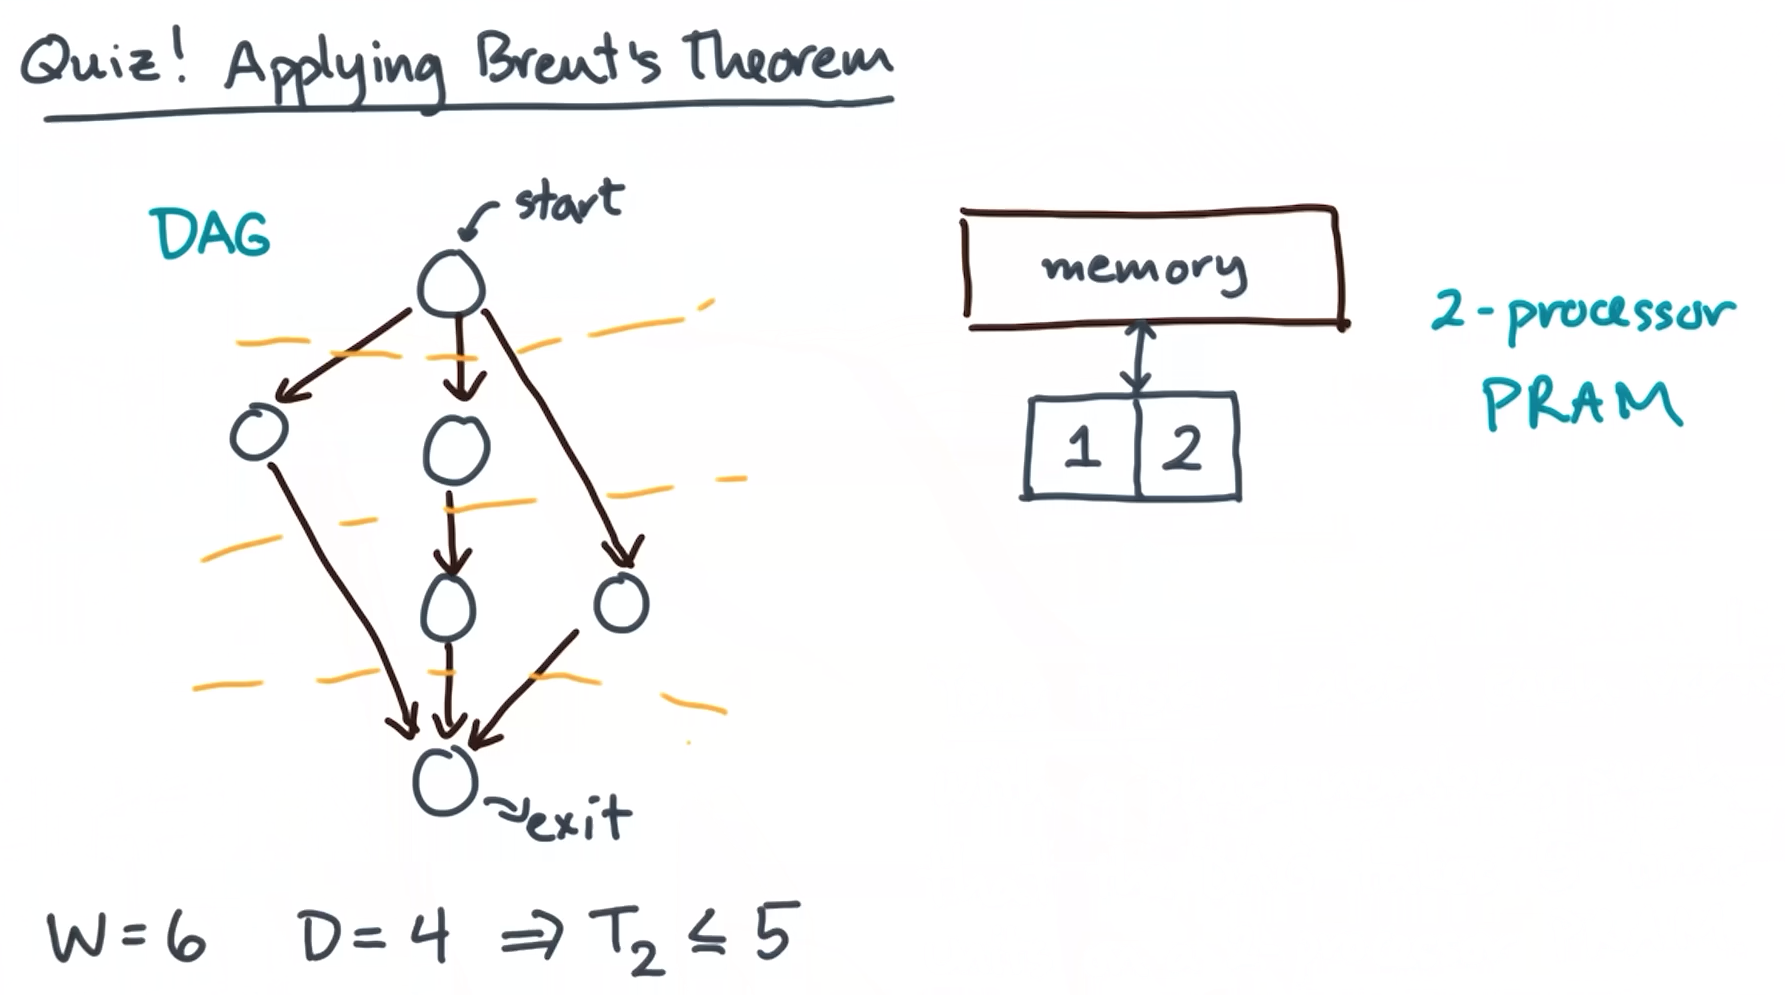 Quiz! Applying Brent's Theorem
DAG
start
memory
2-processor
PRAM
1 2
exit
W=6 D=4 ⇒ T₂ ≤ 5